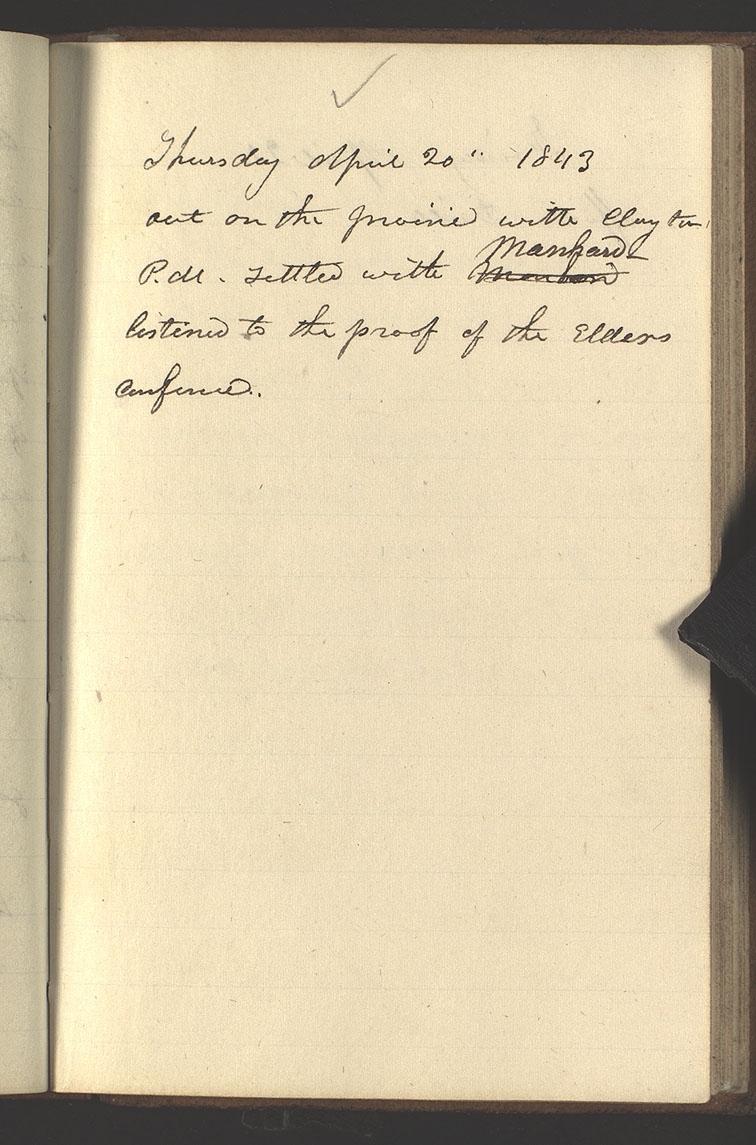 Thursday April 20" 1843
out on the prairie with Clayton,
Manhard
P.M. settled with
listened to the proof of the Elders
confernce.